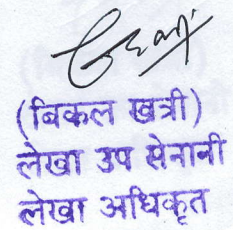 (बिकल खत्री)
लेखा उप सेनानी
लेखा अधिकृत